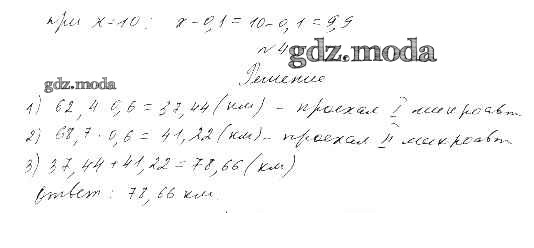 при x=10: x-0,1=10-0,1=9,9
№4
gdz.moda
Решение
gdz.moda
1) 62,4·0,6=37,44(км) - проехал I микроавт.
2) 68,7·0,6=41,22(км) - проехал II микроавт.
3) 37,44+41,22=78,66(км)
Ответ: 78,66 км.